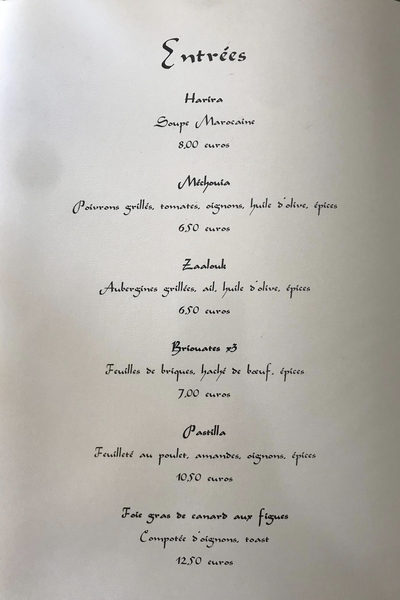 Entrées
Harira
Soupe Marocaine
8,00 euros
Méchouia
Poivrons grillés, tomates, oignons, huile d'olive, épices
6,50 euros
Zaalouk
Aubergines grillées, ail, huile d'olive, épices
6,50 euros
Briouates x3
Feuilles de briques, haché de bœuf, épices
7,00 euros
Pastilla
Feuilleté au poulet, amandes, oignons, épices
10,50 euros
Foie gras de canard aux figues
Compotée d'oignons, toast
12,50 euros